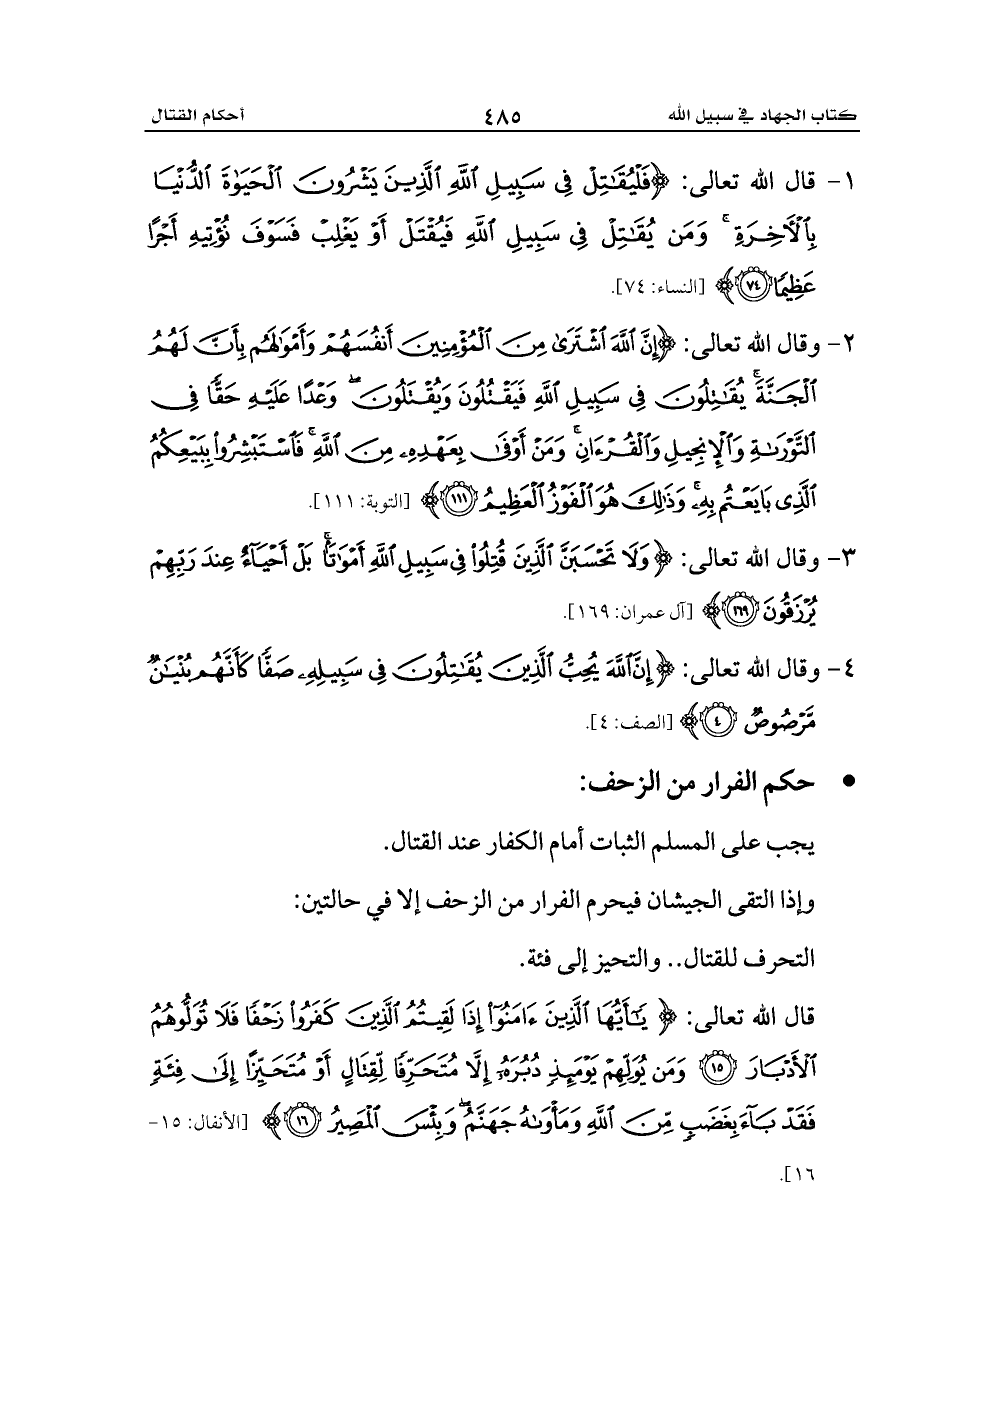 كتاب الجهاد في سبيل الله ٤٨٥ أحكام القتال
١- قال الله تعالى: ﴿فَلْيُقَٰتِلْ فِي سَبِيلِ ٱللَّهِ ٱلَّذِينَ يَشْرُونَ ٱلْحَيَوٰةَ ٱلدُّنْيَا
بِٱلْأَخِرَةِ ۚ وَمَن يُقَٰتِلْ فِي سَبِيلِ ٱللَّهِ فَيُقْتَلْ أَوْ يَغْلِبْ فَسَوْفَ نُؤْتِيهِ أَجْرًا
عَظِيمًا ٧٤﴾ [النساء: ٧٤].
٢- وقال الله تعالى: ﴿إِنَّ ٱللَّهَ ٱشْتَرَىٰ مِنَ ٱلْمُؤْمِنِينَ أَنفُسَهُمْ وَأَمْوَٰلَهُم بِأَنَّ لَهُمُ
ٱلْجَنَّةَ ۚ يُقَٰتِلُونَ فِي سَبِيلِ ٱللَّهِ فَيَقْتُلُونَ وَيُقْتَلُونَ ۖ وَعْدًا عَلَيْهِ حَقًّا فِي
ٱلتَّوْرَىٰةِ وَٱلْإِنجِيلِ وَٱلْقُرْءَانِ ۚ وَمَنْ أَوْفَىٰ بِعَهْدِهِۦ مِنَ ٱللَّهِ ۚ فَٱسْتَبْشِرُوا۟ بِبَيْعِكُمُ
ٱلَّذِي بَايَعْتُم بِهِۦ ۚ وَذَٰلِكَ هُوَ ٱلْفَوْزُ ٱلْعَظِيمُ ١١١﴾ [التوبة: ١١١].
٣- وقال الله تعالى: ﴿وَلَا تَحْسَبَنَّ ٱلَّذِينَ قُتِلُوا۟ فِي سَبِيلِ ٱللَّهِ أَمْوَٰتًۢا ۚ بَلْ أَحْيَآءٌ عِندَ رَبِّهِمْ
يُرْزَقُونَ ١٦٩﴾ [آل عمران: ١٦٩].
٤- وقال الله تعالى: ﴿إِنَّ ٱللَّهَ يُحِبُّ ٱلَّذِينَ يُقَٰتِلُونَ فِي سَبِيلِهِۦ صَفًّا كَأَنَّهُم بُنْيَٰنٌ
مَّرْصُوصٌ ٤﴾ [الصف: ٤].
• حكم الفرار من الزحف:
يجب على المسلم الثبات أمام الكفار عند القتال.
وإذا التقى الجيشان فيحرم الفرار من الزحف إلا في حالتين:
التحرف للقتال.. والتحيز إلى فئة.
قال الله تعالى: ﴿يَٰٓأَيُّهَا ٱلَّذِينَ ءَامَنُوٓا۟ إِذَا لَقِيتُمُ ٱلَّذِينَ كَفَرُوا۟ زَحْفًا فَلَا تُوَلُّوهُمُ
ٱلْأَدْبَارَ ١٥ وَمَن يُوَلِّهِمْ يَوْمَئِذٍ دُبُرَهُۥٓ إِلَّا مُتَحَرِّفًا لِّقِتَالٍ أَوْ مُتَحَيِّزًا إِلَىٰ فِئَةٍ
فَقَدْ بَآءَ بِغَضَبٍ مِّنَ ٱللَّهِ وَمَأْوَىٰهُ جَهَنَّمُ ۖ وَبِئْسَ ٱلْمَصِيرُ ١٦﴾ [الأنفال: ١٥-
١٦].